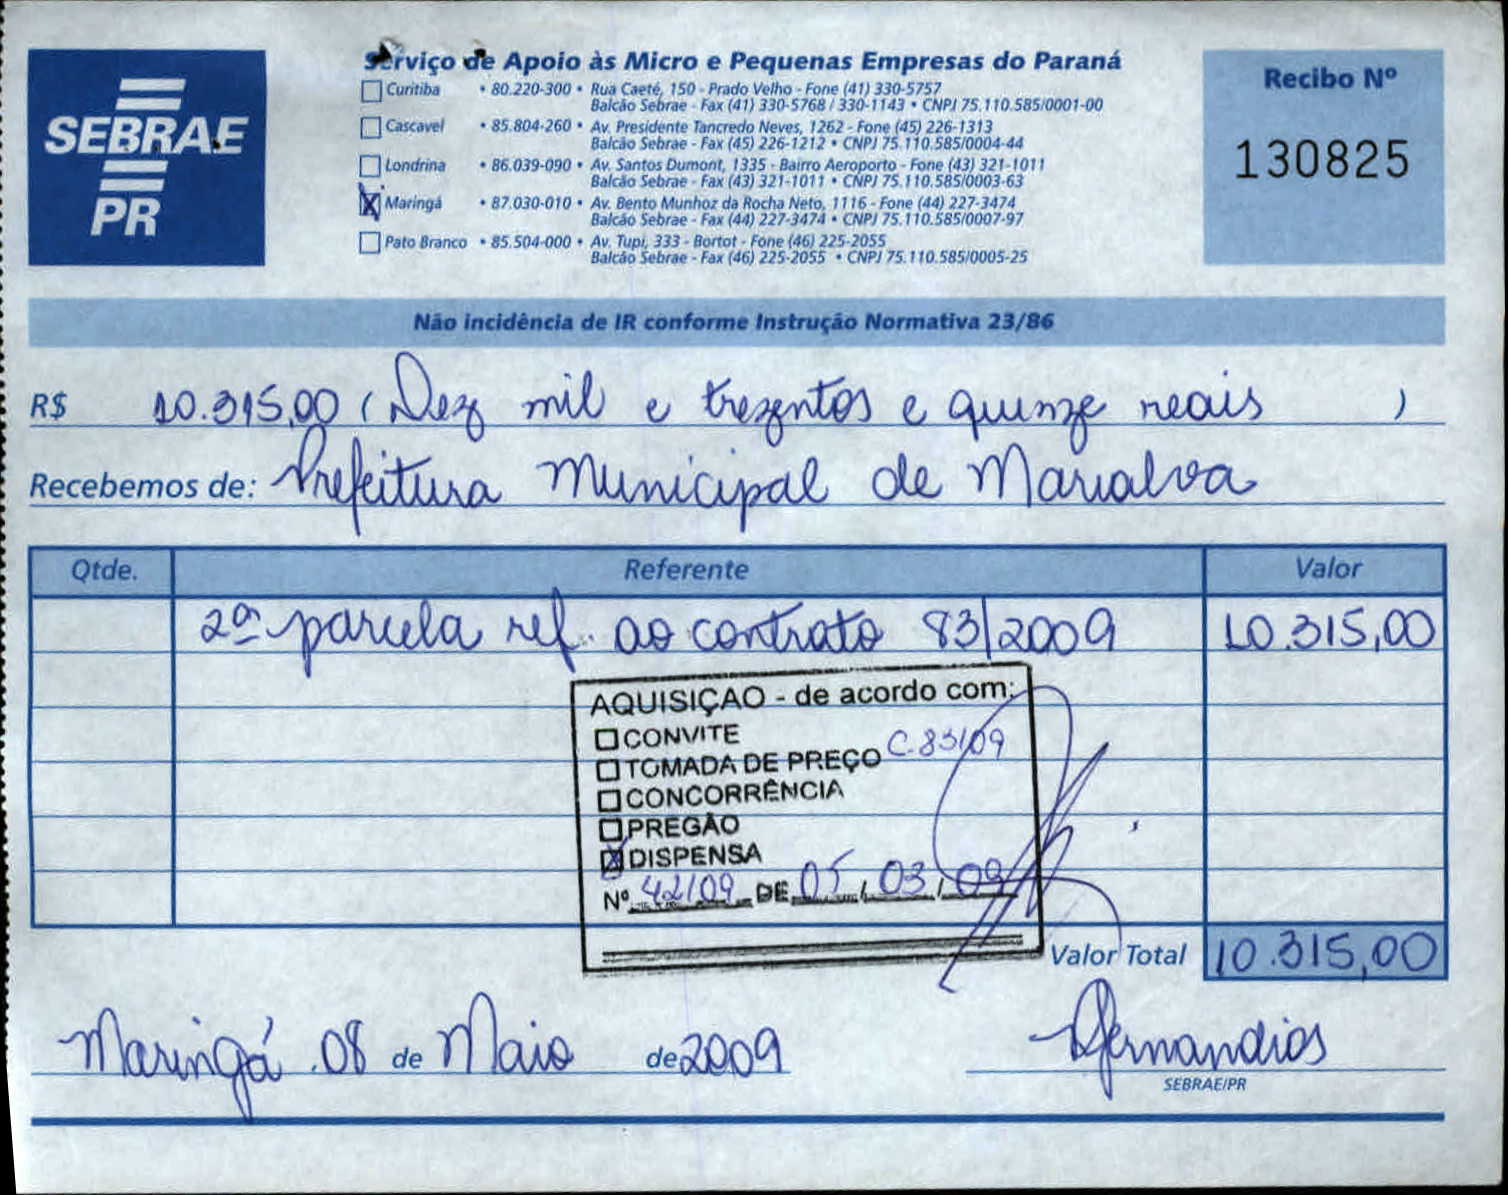 SEBRAE
PR
Serviço de Apoio às Micro e Pequenas Empresas do Paraná
Curitiba • 80.220-300 • Rua Caeté, 150 - Prado Velho - Fone (41) 330-5757
Balcão Sebrae - Fax (41) 330-5768 / 330-1143 • CNPJ 75.110.585/0001-00
Cascavel • 85.804-260 • Av. Presidente Tancredo Neves, 1262 - Fone (45) 226-1313
Balcão Sebrae - Fax (45) 226-1212 • CNPJ 75.110.585/0004-44
Londrina • 86.039-090 • Av. Santos Dumont, 1335 - Bairro Aeroporto - Fone (43) 321-1011
Balcão Sebrae - Fax (43) 321-1011 • CNPJ 75.110.585/0003-63
Maringá • 87.030-010 • Av. Bento Munhoz da Rocha Neto, 1116 - Fone (44) 227-3474
Balcão Sebrae - Fax (44) 227-3474 • CNPJ 75.110.585/0007-97
Pato Branco • 85.504-000 • Av. Tupi, 333 - Bortot - Fone (46) 225-2055
Balcão Sebrae - Fax (46) 225-2055 • CNPJ 75.110.585/0005-25
Recibo Nº
130825
Não incidência de IR conforme Instrução Normativa 23/86
R$ 10.315,00 (Dez mil e trezentos e quinze reais )
Recebemos de: Prefeitura Municipal de Marialva
Qtde. Referente Valor
2ª parcela ref. ao contrato 83/2009 10.315,00
AQUISIÇAO - de acordo com:
CONVITE
TOMADA DE PREÇO C.83/09
CONCORRÊNCIA
PREGÃO
DISPENSA
Nº 42/09 DE 05 / 03 / 09
Valor Total 10.315,00
Maringá 08 de Maio de 2009
SEBRAE/PR